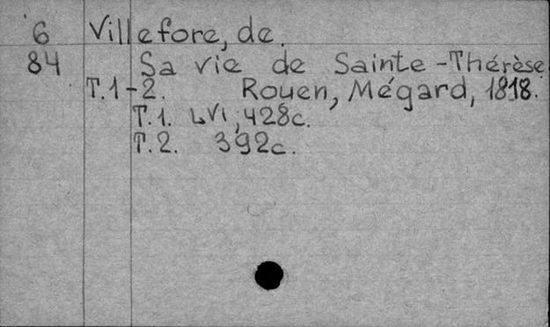 6 Villefore, de.
84 Sa vie de Sainte-Thérèse
T.1-2. Rouen, Mégard, 1818.
T.1. LVI, 428c.
T.2. 392c.